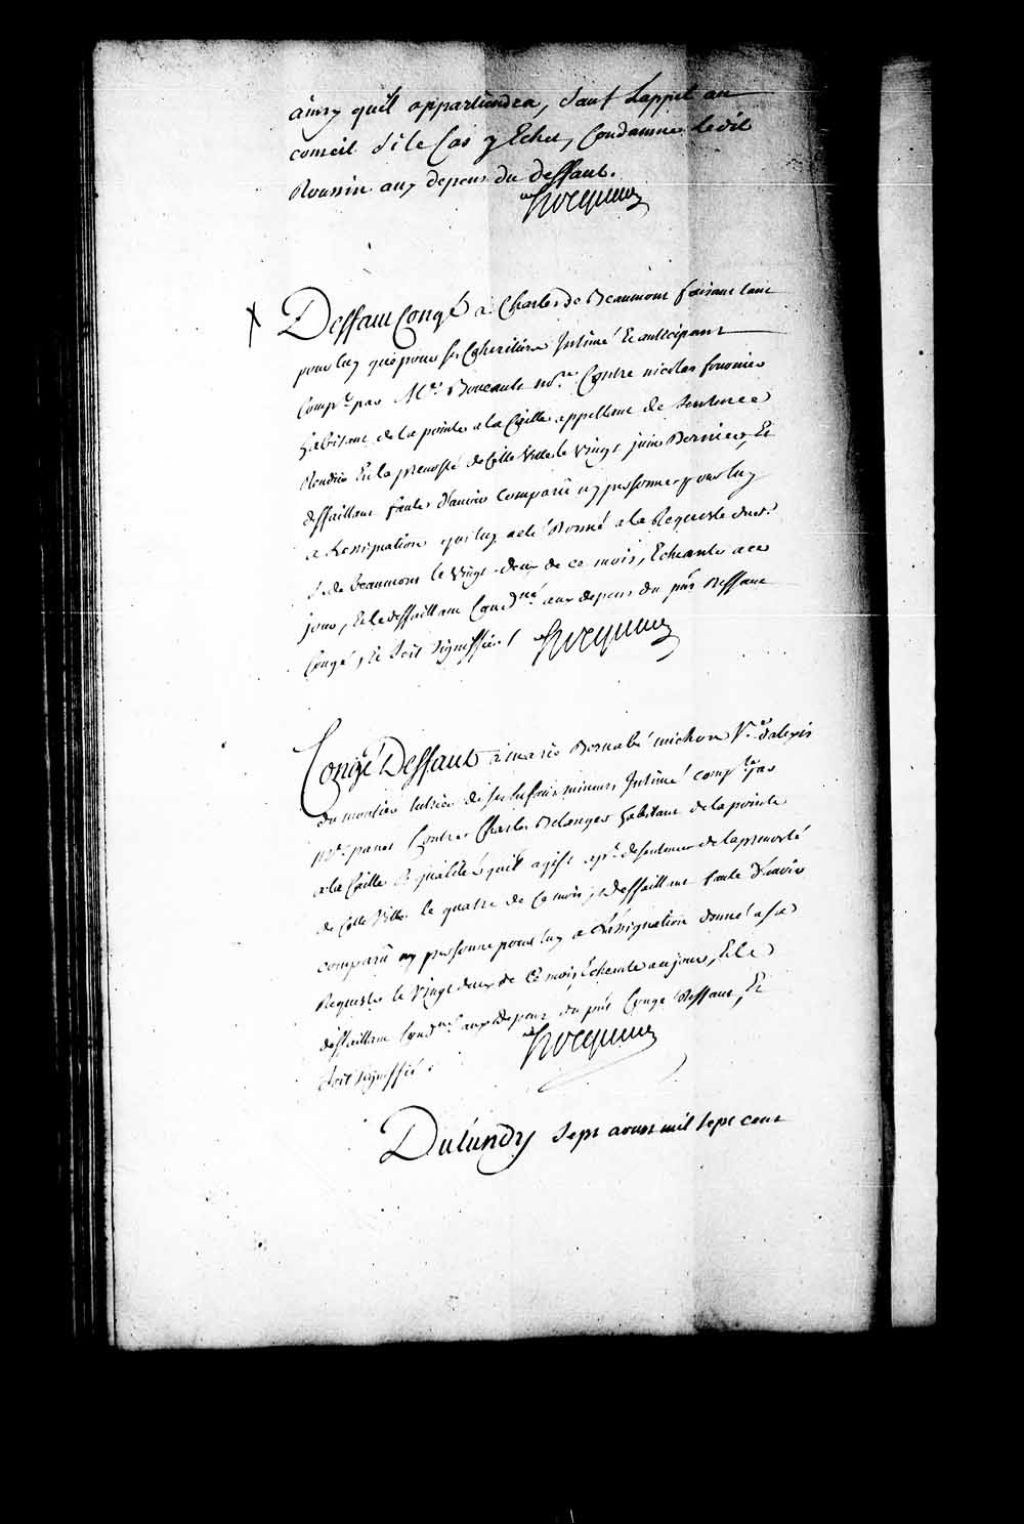 ainsy quil appartiendra, sauf Lappel au
conseil sile Cas y Echet, Condamne Ledit
Roussin aux depens du deffaut.
hocquart
X Deffaut Congé a Charles de Beaumont faisant tant
pour luy que pour ses Coheritiers Intimé Et anticipant
Comp.t par M.e Boucault no.re Contre nicolas fournier
habitant de la pointe a la Caille appellant de Sentence
Rendüe En la prevosté de Cette Ville le Vingt juin Dernier, Et
deffaillant faute d'avoir Comparu ny personne pour luy
a Lassignation qui luy a été Donné a la Requeste dud.t
S. de Beaumont le Vingt deux de ce mois, Echeante a ce
jour, Et le deffaillant Cond.né aux depens du p.nt Deffaut
Congé, Et Soit Signiffié /. hocquart
Congé Deffaut a marie Bernabé michon V.e d'alexis
du moutier tutrice de ses Enfans mineurs Intimé comp.te par
M.e panet Contre Charles Belanger habitant de la pointe
a la Caille Es qualités quil agist ap.t de Sentence de la prevosté
de Cette Ville le quatre de Ce mois, Deffaillant faute d'avoir
comparu ny personne pour luy a L'assignation donné a Sa
Requeste le Vingt deux de Ce mois Echeante au jour, Et le
deffaillant Cond.né aux depens du p.nt Congé Deffaut, Et
Soit signiffié. hocquart
Du Lundy Sept aoust mil Sept cent